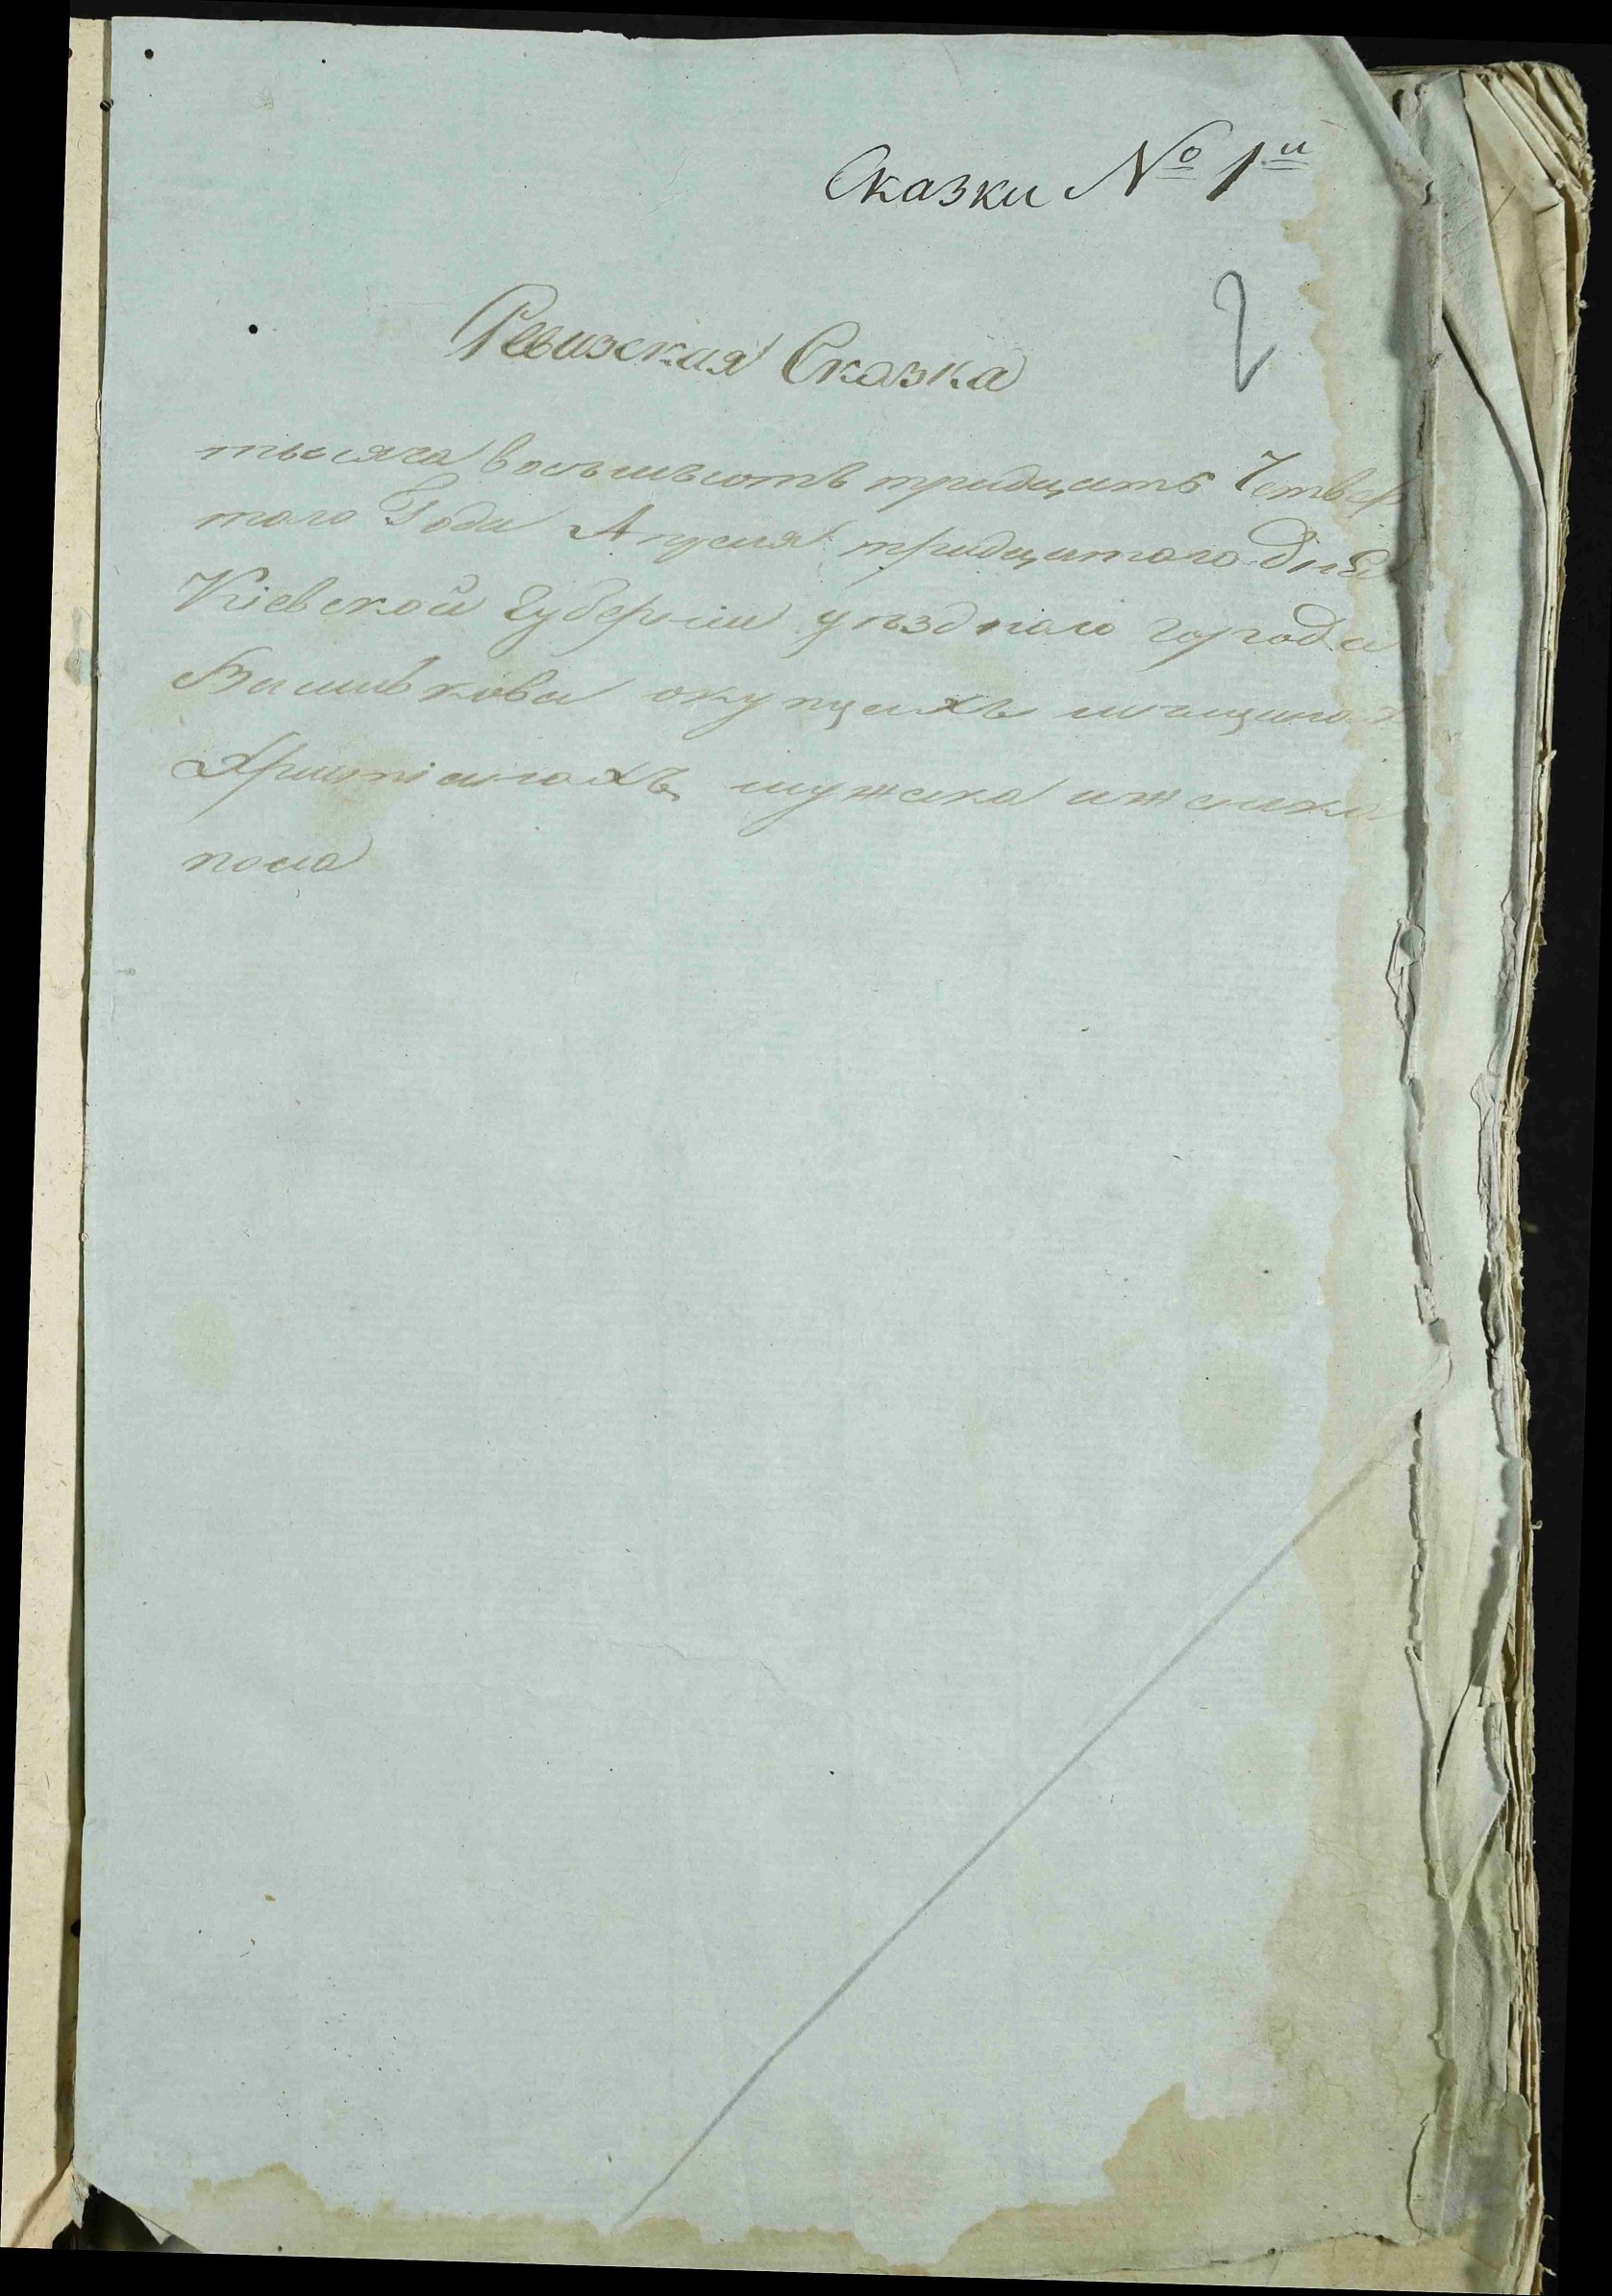 Сказки № 1й
2
Ревизская Сказка
тысяча восъмьсотъ тридцать Четвер
того Года Апреля тридцатого дня
Кіевской Губерніи уѣзднаго города
Василькова окупцахъ мещанах
Христіанахъ мужска иженска
пола